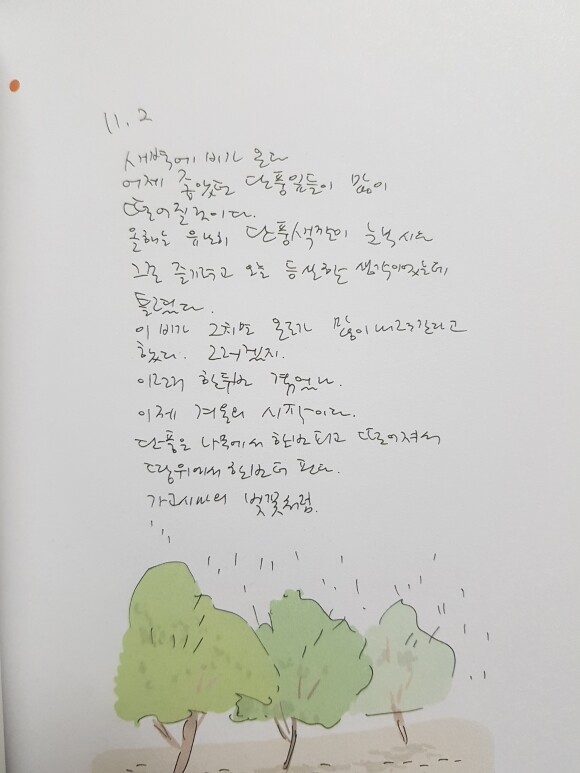 11. 2
새벽에 비가 온다
어제 좋았던 단풍잎들이 많이
떨어질 것이다.
올해는 유난히 단풍색깔이 눈부시다
그걸 즐기려고 오늘 등산하는 생각이었는데,
틀렸다.
이 비가 그치면 온도가 많이 내려간다고
했다. 그러겠지.
이런거 한두번 겪었나.
이제 겨울의 시작이다.
단풍은 나무에서 한번 피고 떨어져서
땅위에서 한번 더 핀다.
가고시마의 벚꽃처럼.